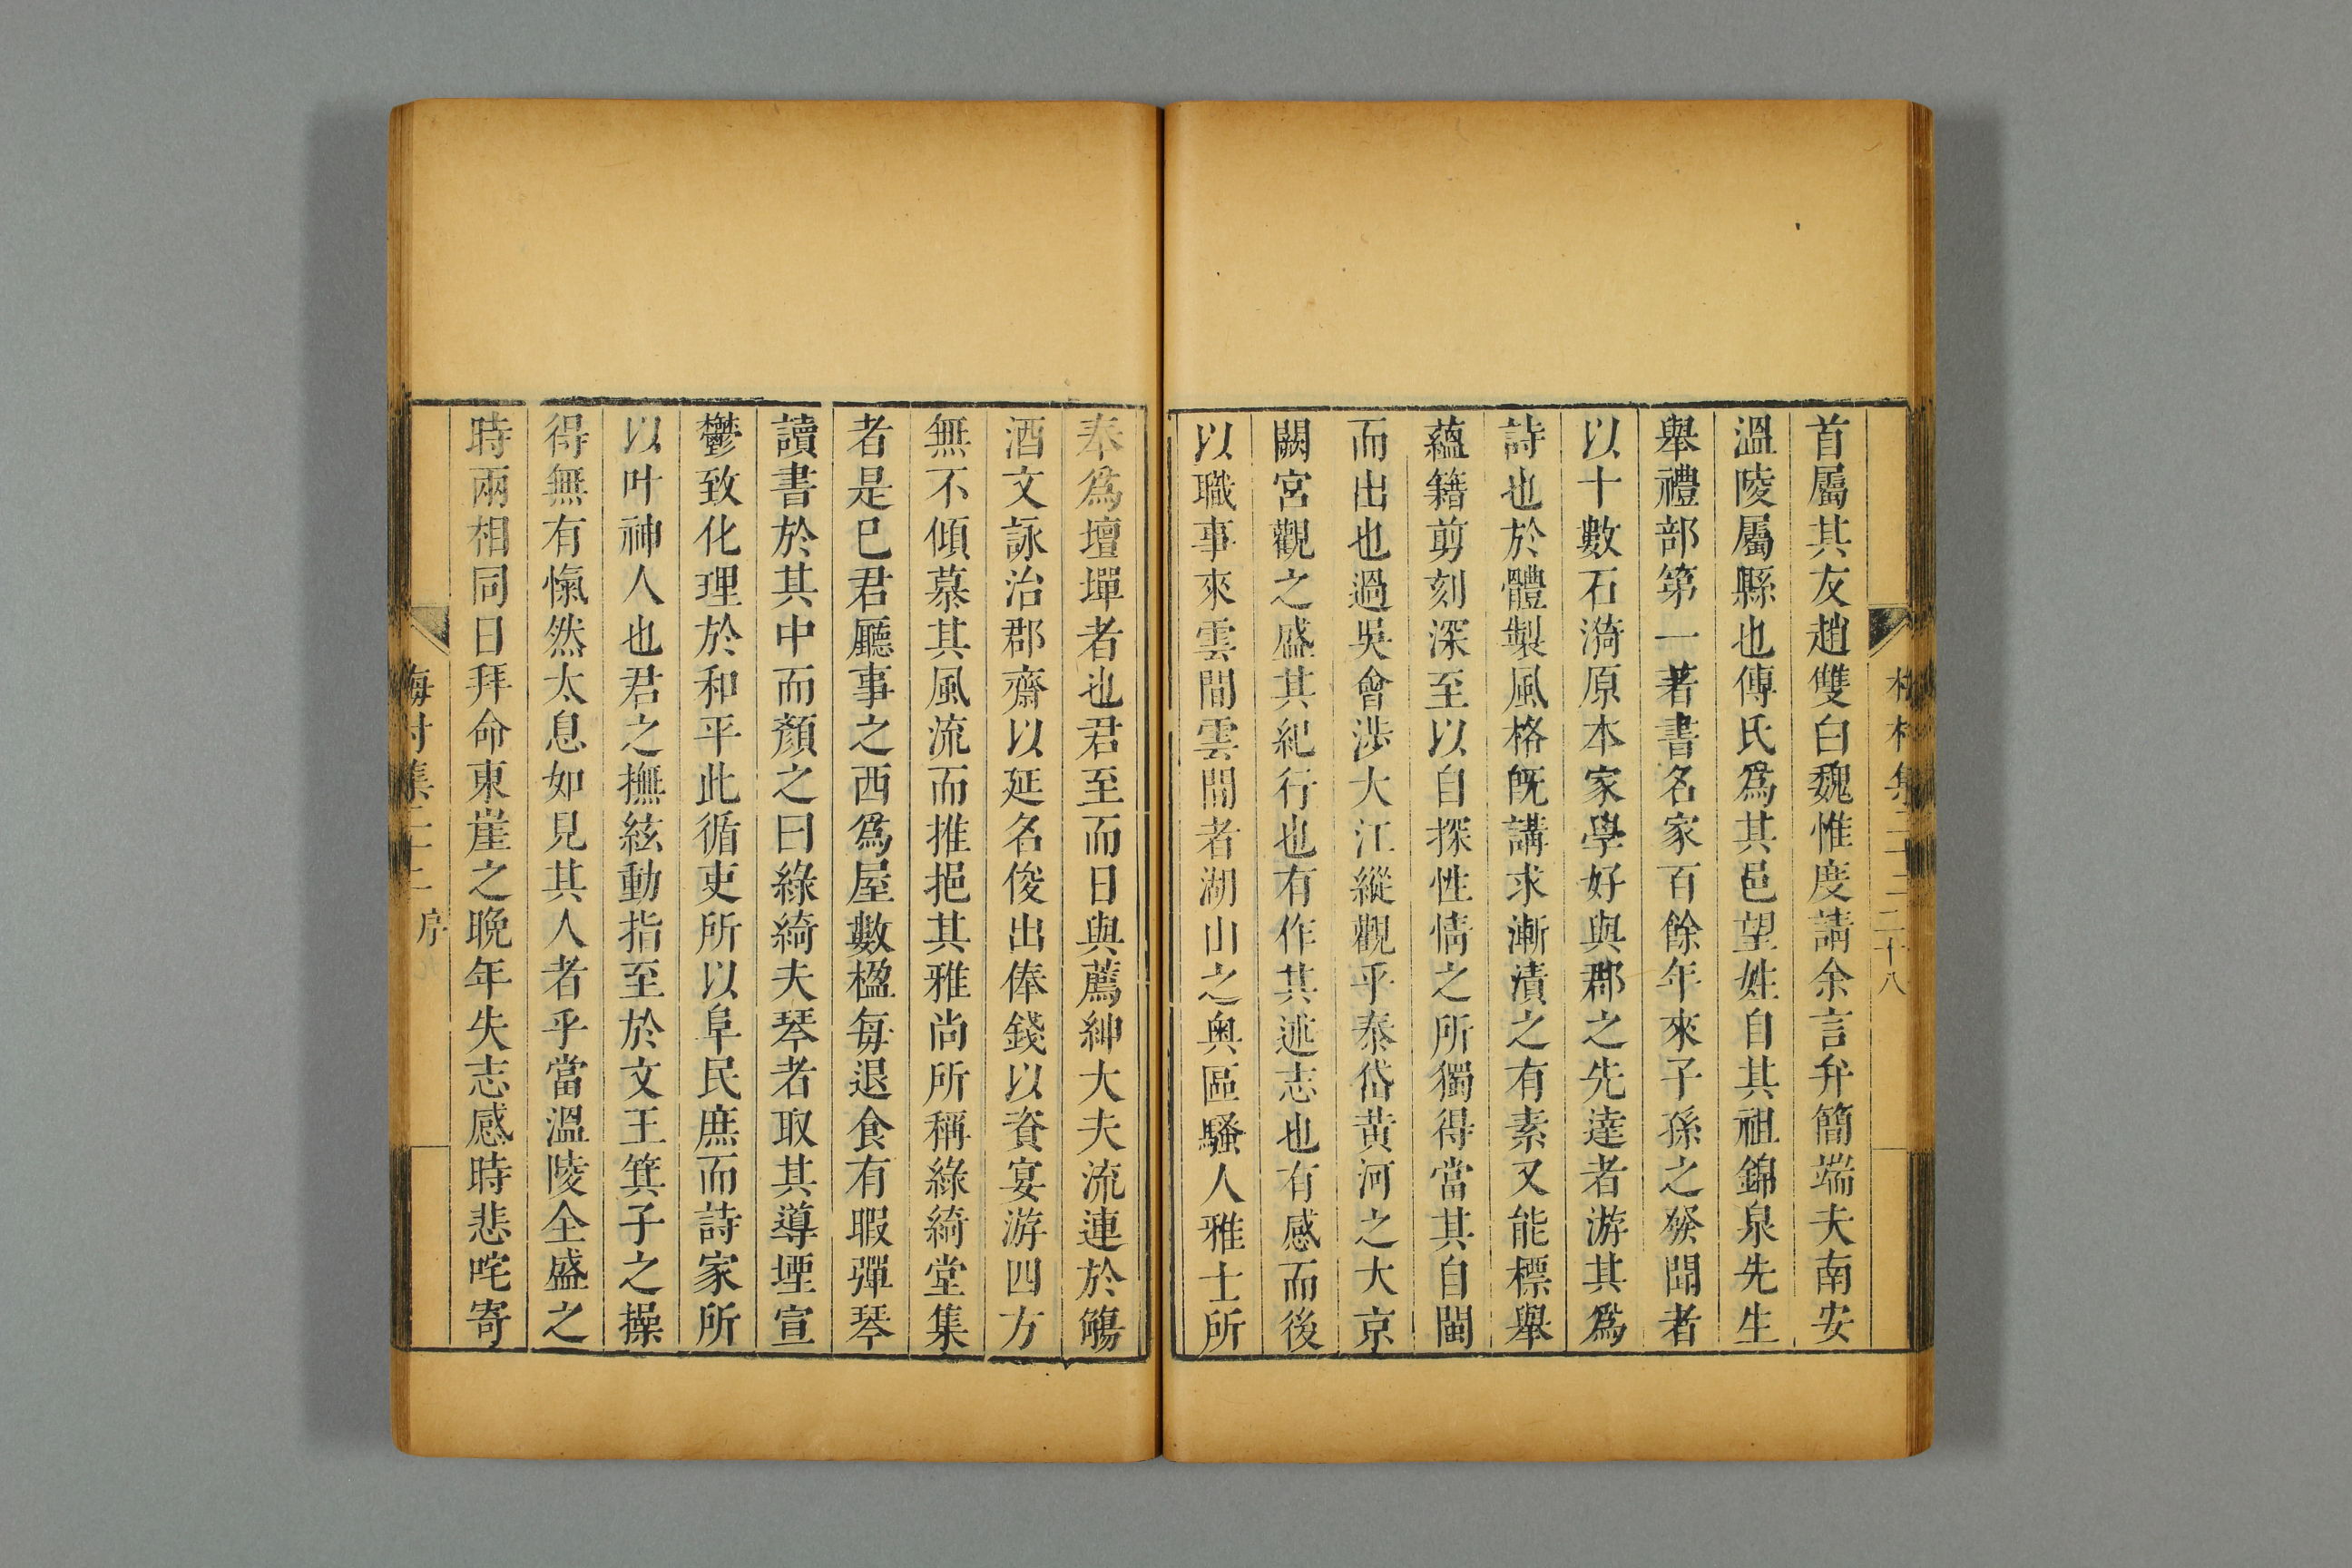 首屬其友趙雙白魏惟度請余言弁簡端夫南安
溫陵屬縣也傅氏爲其邑望姓自其祖錦泉先生
舉禮部第一著書名家百餘年來子孫之發聞者
以十數石漪原本家學好與郡之先達者游其爲
詩也於體製風格旣講求漸漬之有素又能標舉
蘊籍剪刻深至以自探性情之所獨得當其自閩
而出也過吳會涉大江縱觀乎泰岱黃河之大京
闕宮觀之盛其紀行也有作其述志也有感而後
以職事來雲間雲間者湖山之奧區騷人雅士所
奉爲壇墠者也君至而日與薦紳大夫流連於觴
酒文詠治郡齋以延名俊出俸錢以資宴游四方
無不傾慕其風流而推挹其雅尚所稱綠綺堂集
者是已君廳事之西爲屋數楹每退食有暇彈琴
讀書於其中而顏之曰綠綺夫琴者取其導堙宣
鬱致化理於和平此循吏所以阜民庶而詩家所
以叶神人也君之撫絃動指至於文王箕子之操
得無有愾然太息如見其人者乎當溫陵全盛之
時兩相同日拜命東崖之晚年失志感時悲咤寄
梅村集二十二 序
二十八